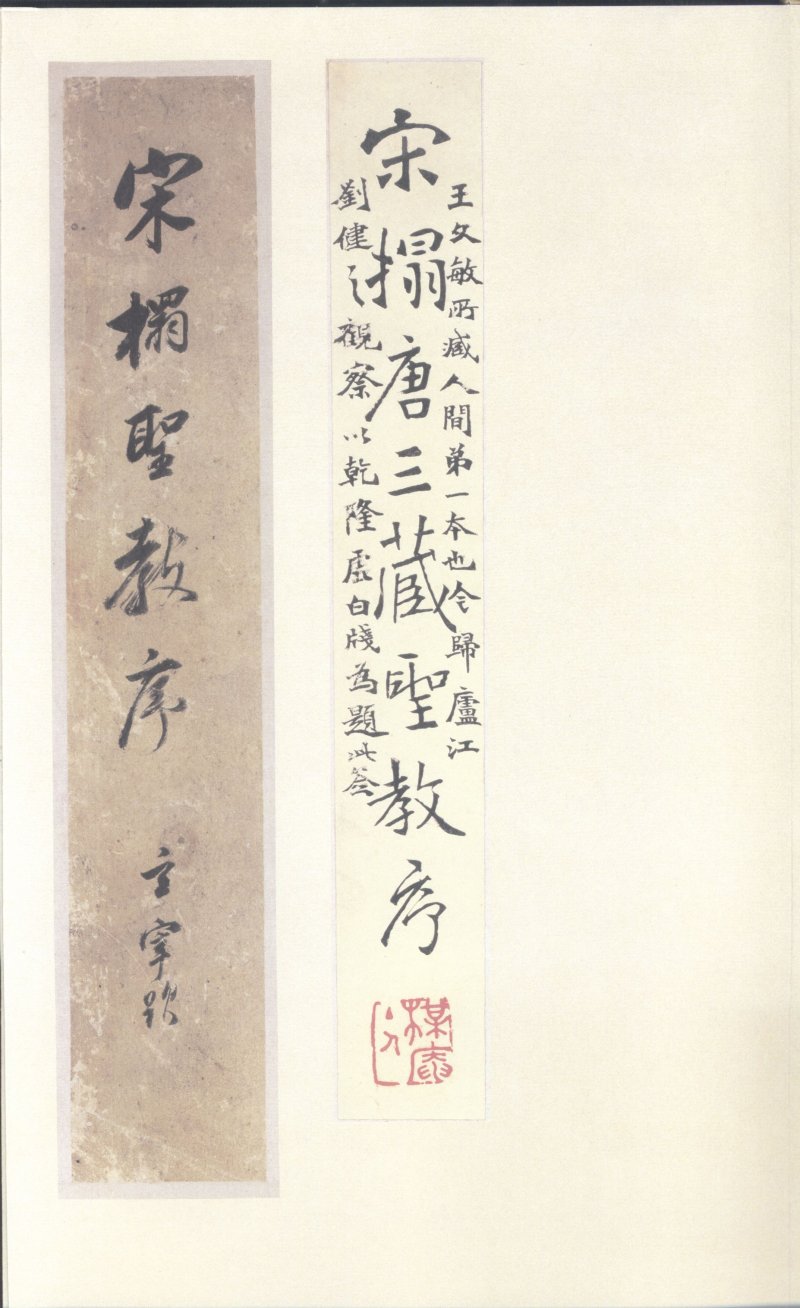 宋搨唐三藏聖教序
王文敏所藏人間弟一本也今歸廬江
劉健之觀察以乾隆虛白牋為題此簽
宋榻聖教序